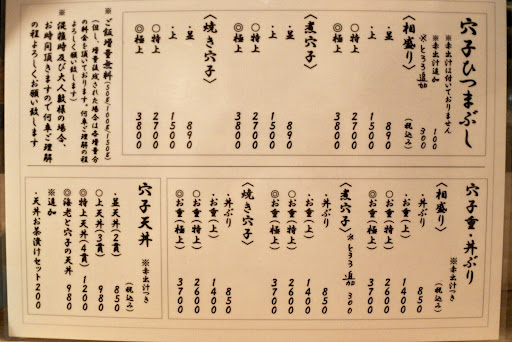 穴子ひつまぶし
※赤出汁は付いておりません
※赤出汁追加 100
※とろろ追加 300
〈相盛り〉 (税込み)
・並 890
・上 1500
○特上 2700
◎極上 3800
〈煮穴子〉
・並 890
・上 1500
○特上 2700
◎極上 3800
〈焼き穴子〉
・並 890
・上 1500
○特上 2700
◎極上 3800
※ご飯増量無料(50g,100g,150g)
(但し、増量後残された場合は各増量分
の料金を頂いております。何卒ご理解の程
よろしくお願い致します。)
※混雑時及び大人数様の場合、
お時間頂きますので何卒ご理解
の程よろしくお願い致します
穴子重・丼ぶり
※赤出汁つき
〈相盛り〉 (税込み)
・丼ぶり 850
・お重(上) 1400
○お重(特上) 2600
◎お重(極上) 3700
〈煮穴子〉 ※とろろ追加 300
・丼ぶり 850
・お重(上) 1400
○お重(特上) 2600
◎お重(極上) 3700
〈焼き穴子〉
・丼ぶり 850
・お重(上) 1400
○お重(特上) 2600
◎お重(極上) 3700
穴子天丼
※赤出汁つき
(税込み)
・並天丼(2貫) 850
○上天丼(3貫) 980
◎特上天丼(4貫) 1200
◎海老と穴子の天丼 980
※追加
・天丼お茶漬けセット 200